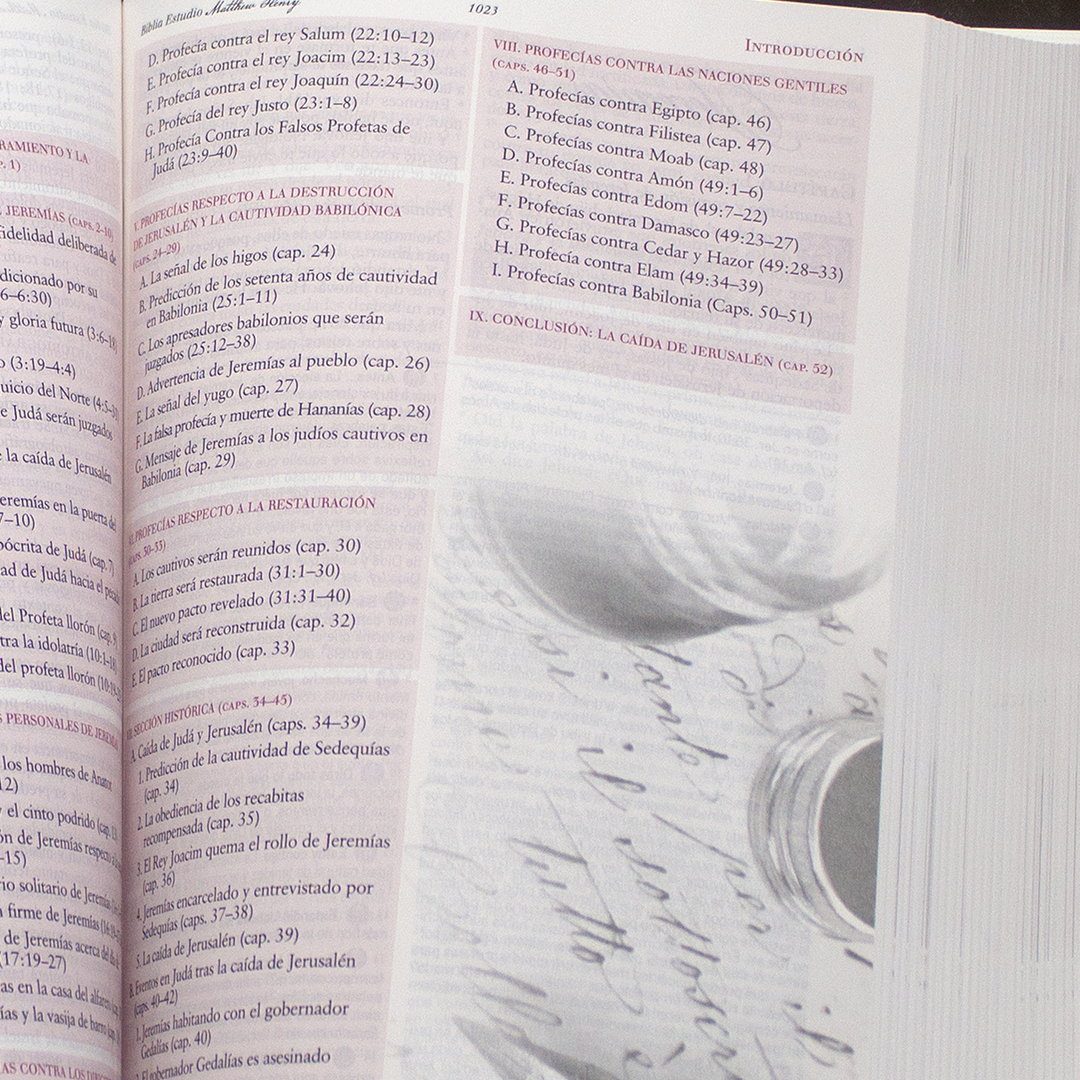 Biblia Estudio Matthew Henry
1023
INTRODUCCIÓN
RAMIENTO Y LA
JEREMÍAS (CAPS. 2–10)
fidelidad deliberada de
dicionado por su
6–6:30)
y gloria futura (3:6–18)
o (3:19–4:4)
uicio del Norte (4:5–31)
e Judá serán juzgados
la caída de Jerusalén
eremías en la puerta del
7–10)
pócrita de Judá (cap. 7)
ad de Judá hacia el
del Profeta llorón (cap. 9)
tra la idolatría (10:1–
del profeta llorón (10:
PERSONALES DE
los hombres de Anatot
12)
y el cinto podrido (cap.
ón de Jeremías respecto
–15)
rio solitario de Jeremías
firme de Jeremías
de Jeremías acerca del
(17:19–27)
as en la casa del alfarero
ías y la vasija de barro
AS CONTRA LOS
D. Profecía contra el rey Salum (22:10–12)
E. Profecía contra el rey Joacim (22:13–23)
F. Profecía contra el rey Joaquín (22:24–30)
G. Profecía del rey Justo (23:1–8)
H. Profecía Contra los Falsos Profetas de
Judá (23:9–40)
V. PROFECÍAS RESPECTO A LA DESTRUCCIÓN
DE JERUSALÉN Y LA CAUTIVIDAD BABILÓNICA
(CAPS. 24–29)
A. La señal de los higos (cap. 24)
B. Predicción de los setenta años de cautividad
en Babilonia (25:1–11)
C. Los apresadores babilonios que serán
juzgados (25:12–38)
D. Advertencia de Jeremías al pueblo (cap. 26)
E. La señal del yugo (cap. 27)
F. La falsa profecía y muerte de Hananías (cap. 28)
G. Mensaje de Jeremías a los judíos cautivos en
Babilonia (cap. 29)
VI. PROFECÍAS RESPECTO A LA RESTAURACIÓN
(CAPS. 30–33)
A. Los cautivos serán reunidos (cap. 30)
B. La tierra será restaurada (31:1–30)
C. El nuevo pacto revelado (31:31–40)
D. La ciudad será reconstruida (cap. 32)
E. El pacto reconocido (cap. 33)
VII. SECCIÓN HISTÓRICA (CAPS. 34–45)
A. Caída de Judá y Jerusalén (caps. 34–39)
1. Predicción de la cautividad de Sedequías
(cap. 34)
2. La obediencia de los recabitas
recompensada (cap. 35)
3. El Rey Joacim quema el rollo de Jeremías
(cap. 36)
4. Jeremías encarcelado y entrevistado por
Sedequías (caps. 37–38)
5. La caída de Jerusalén (cap. 39)
B. Eventos en Judá tras la caída de Jerusalén
(caps. 40–42)
1. Jeremías habitando con el gobernador
Gedalías (cap. 40)
2. El gobernador Gedalías es asesinado
VIII. PROFECÍAS CONTRA LAS NACIONES GENTILES
(CAPS. 46–51)
A. Profecías contra Egipto (cap. 46)
B. Profecías contra Filistea (cap. 47)
C. Profecías contra Moab (cap. 48)
D. Profecías contra Amón (49:1–6)
E. Profecías contra Edom (49:7–22)
F. Profecías contra Damasco (49:23–27)
G. Profecías contra Cedar y Hazor (49:28–33)
H. Profecía contra Elam (49:34–39)
I. Profecías contra Babilonia (Caps. 50–51)
IX. CONCLUSIÓN: LA CAÍDA DE JERUSALÉN (CAP. 52)
il
per
tutto
il
è